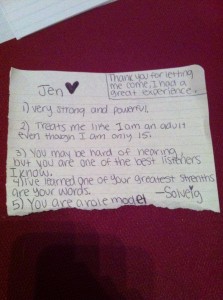 Jen
Thank you for letting
me come, I had a
great experience.
1) Very strong and powerful
2) Treats me like I am an adult
even though I am only 15.
3) You may be hard of hearing
but you are one of the best listeners
I know.
4) I've learned one of your greatest strenths
are your words.
—Solveig
5) You are a role model